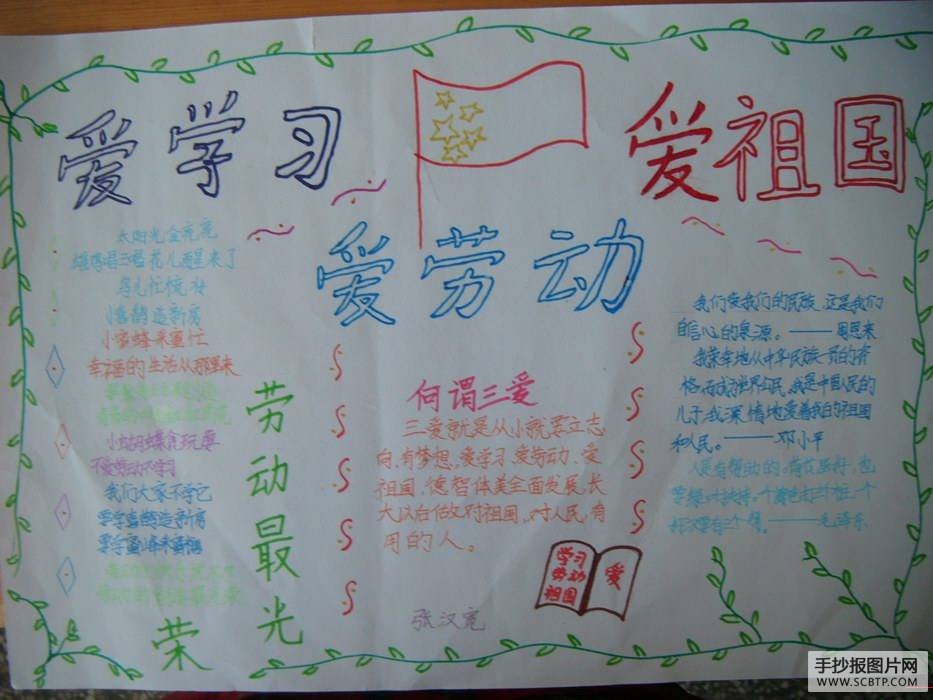 爱学习
爱祖国
爱劳动
太阳光金亮亮
雄鸡唱三唱花儿醒来了
鸟儿忙梳妆
小喜鹊造新房
小蜜蜂采蜜忙
幸福的生活从那里来
小蝴蝶贪玩耍
不爱劳动不学习
我们大家不学它
要学喜鹊造新房
要学蜜蜂采蜜糖
劳动最光
荣
何谓三爱
三爱就是从小就要立志
向、有梦想,爱学习、爱劳动、爱
祖国、德智体美全面发展,长
大以后做对祖国、对人民、有
用的人。
学习
劳动
祖国
爱
张汉宽
我们爱我们的民族,这是我们
自信心的泉源。——周恩来
我荣幸地从中华民族一员的资
格,而成为世界公民。我是中国人民的
儿子,我深情地爱着我的祖国
和人民。——邓小平
一个好汉要有三个帮。——毛泽东
手抄报图片网
WWW.SCBTP.COM